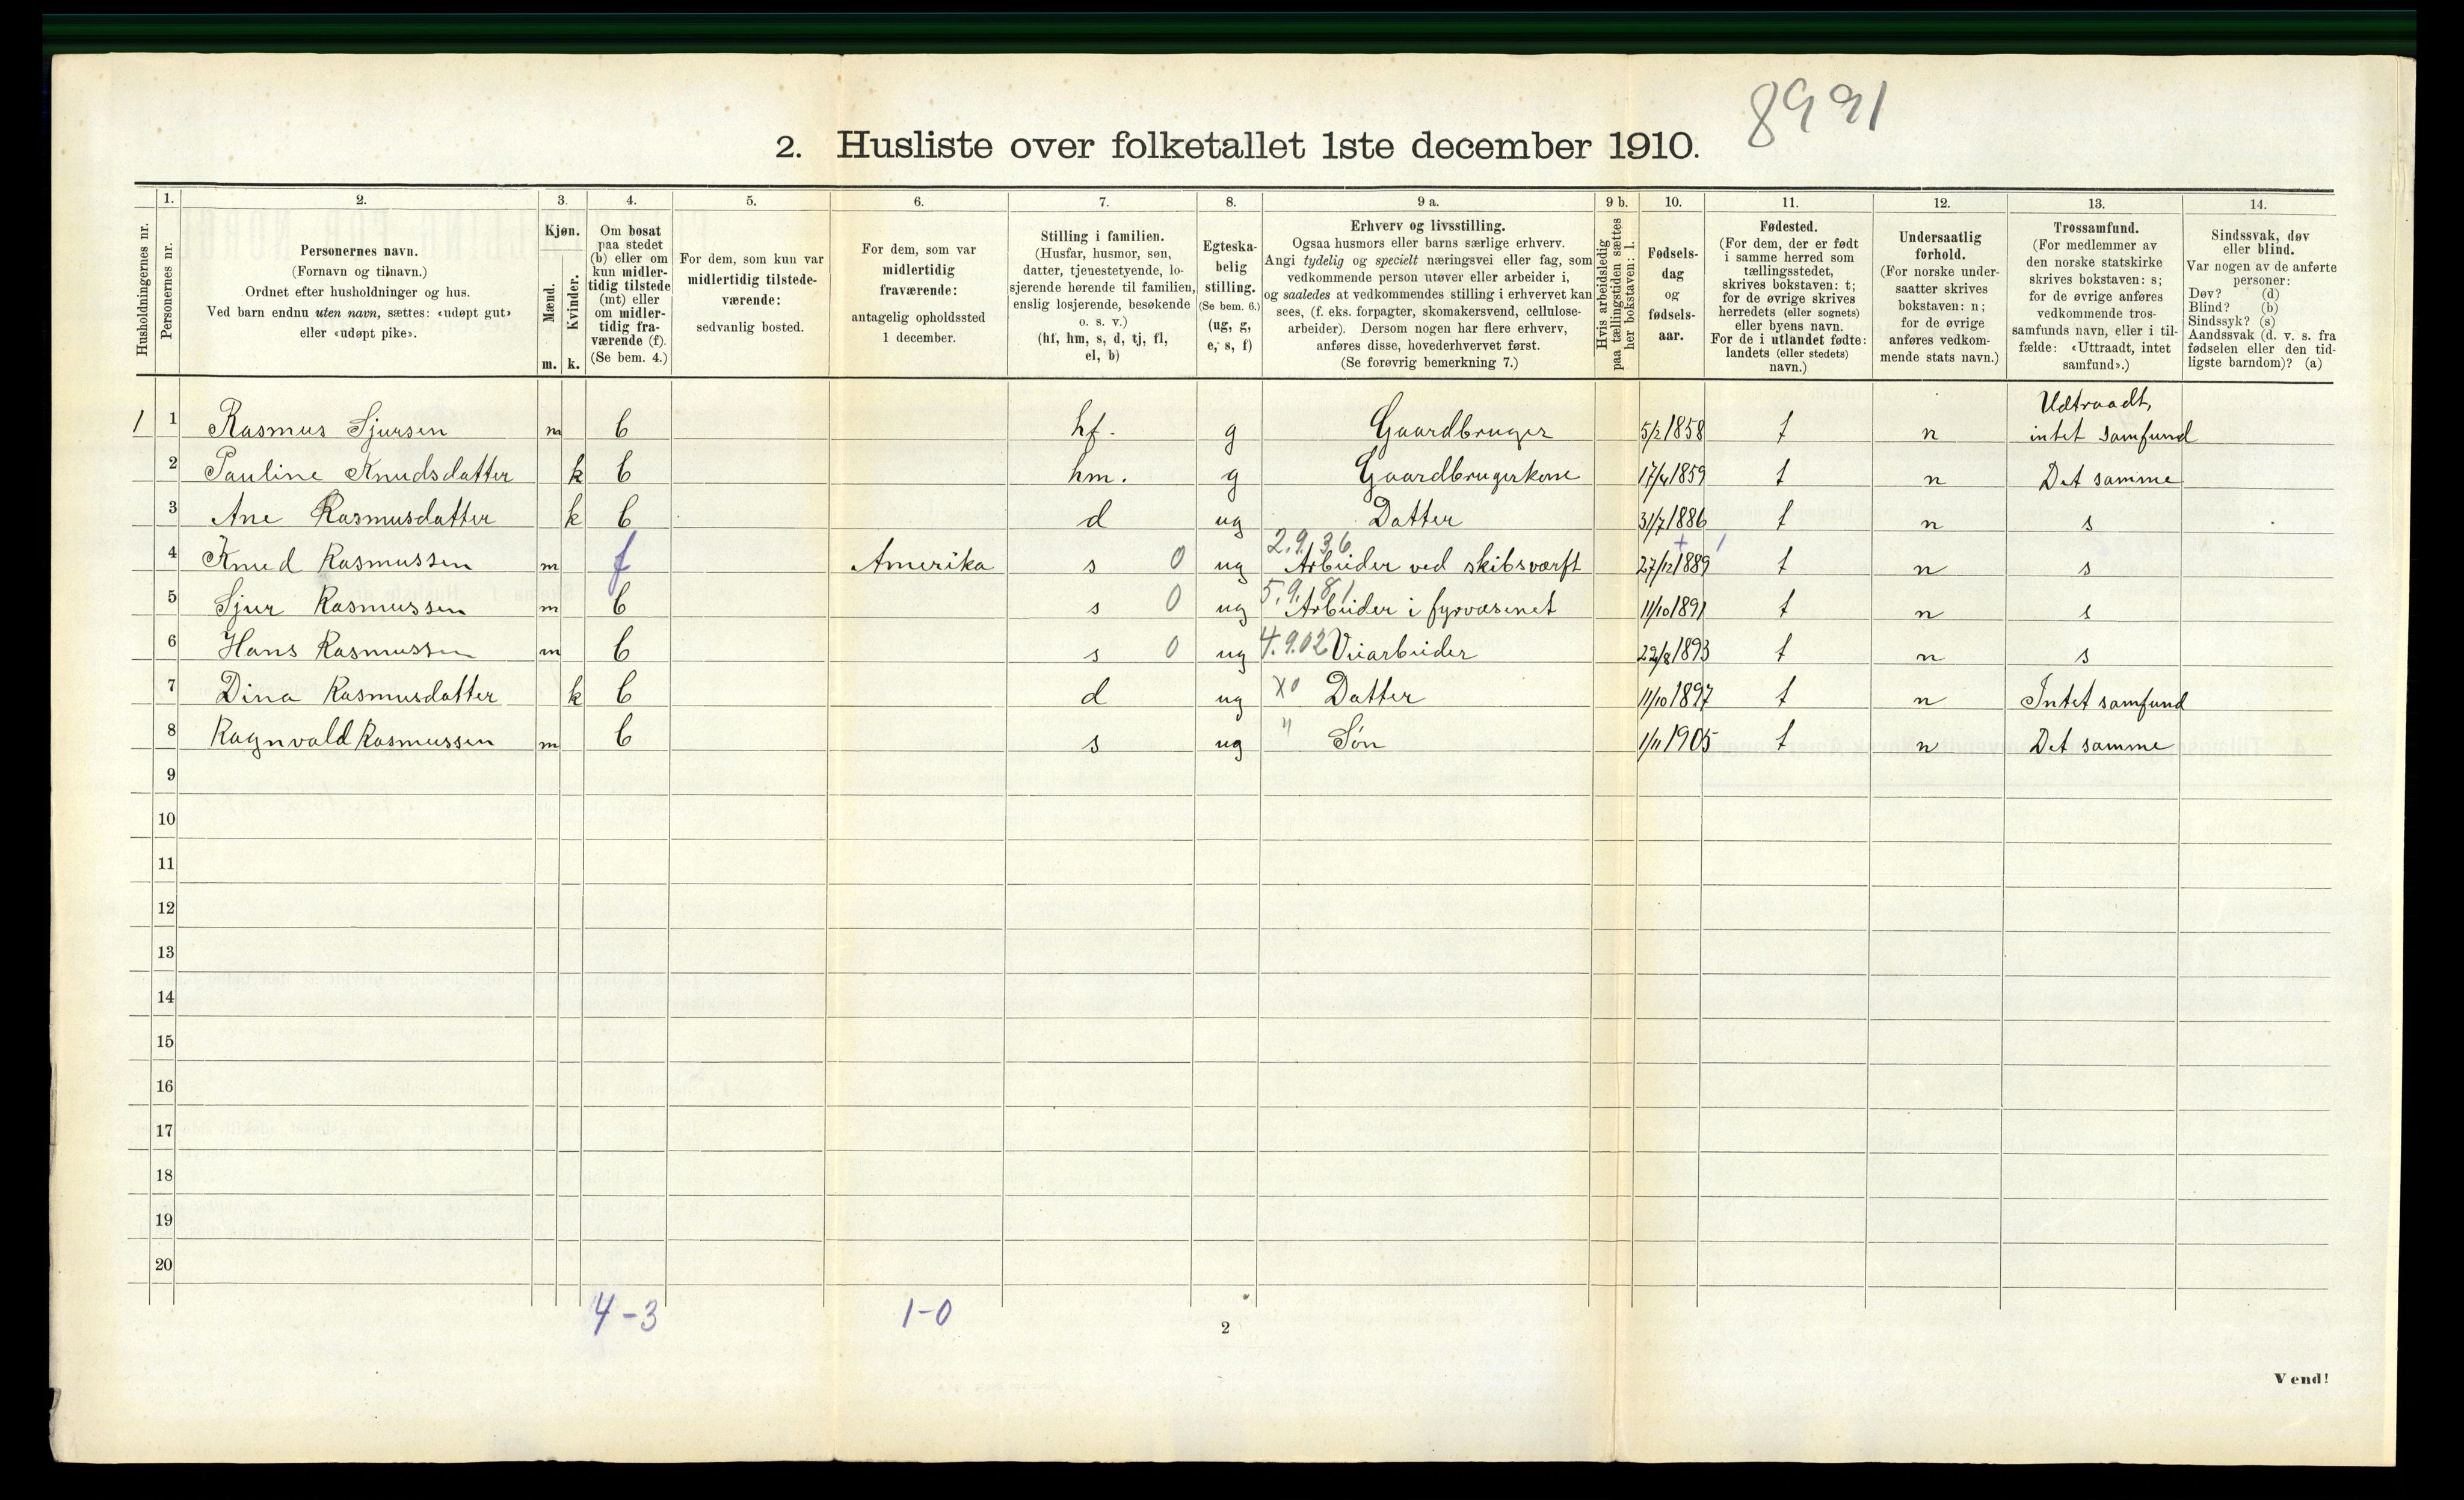 8991
2. Husliste over folketallet 1ste december 1910.
Husholdningernes nr.
1.
Personernes nr.
2.
Personernes navn.
(Fornavn og tilnavn.)
Ordnet efter husholdninger og hus.
Ved barn endnu uten navn, sættes: «udøpt gut»
eller «udøpt pike».
3.
Kjøn.
Mænd.
Kvinder.
m. k.
4.
Om bosat
paa stedet
(b) eller om
kun midler-
tidig tilstede
(mt) eller
om midler-
tidig fra-
værende (f).
(Se bem. 4.)
5.
For dem, som kun var
midlertidig tilstede-
værende:
sedvanlig bosted.
6.
For dem, som var
midlertidig
fraværende:
antagelig opholdssted
1 december.
7.
Stilling i familien.
(Husfar, husmor, søn,
datter, tjenestetyende, lo-
sjerende hørende til familien,
enslig losjerende, besøkende
o. s. v.)
(hf, hm, s, d, tj, fl,
el, b)
8.
Egteska-
belig
stilling.
(Se bem. 6.)
(ug, g,
e, s, f)
9 a.
Erhverv og livsstilling.
Ogsaa husmors eller barns særlige erhverv.
Angi tydelig og specielt næringsvei eller fag, som
vedkommende person utøver eller arbeider i,
og saaledes at vedkommendes stilling i erhvervet kan
sees, (f. eks. forpagter, skomakersvend, cellulose-
arbeider). Dersom nogen har flere erhverv,
anføres disse, hovederhvervet først.
(Se forøvrig bemerkning 7.)
9 b.
Hvis arbeidsledig
paa tællingstiden sættes
her bokstaven: l.
10.
Fødsels-
dag
og
fødsels-
aar.
11.
Fødested.
(For dem, der er født
i samme herred som
tællingsstedet,
skrives bokstaven: t;
for de øvrige skrives
herredets (eller sognets)
eller byens navn.
For de i utlandet fødte:
landets (eller stedets)
navn.)
12.
Undersaatlig
forhold.
(For norske under-
saatter skrives
bokstaven: n;
for de øvrige
anføres vedkom-
mende stats navn.)
13.
Trossamfund.
(For medlemmer av
den norske statskirke
skrives bokstaven: s;
for de øvrige anføres
vedkommende tros-
samfunds navn, eller i til-
fælde: «Uttraadt, intet
samfund».)
14.
Sindssvak, døv
eller blind.
Var nogen av de anførte
personer:
Døv? (d)
Blind? (b)
Sindssyk? (s)
Aandssvak (d. v. s. fra
fødselen eller den tid-
ligste barndom)? (a)
Udtraadt,
1 1 Rasmus Sjursen m b hf. g Gaardbruger 5/2 1858 t n intet samfund
2 Pauline Knudsdatter k b hm. g Gaardbrugerkone 17/4 1859 t n Det samme
3 Ane Rasmusdatter k b d ug Datter 31/7 1886 t n s
2.9.36 + 1
4 Knud Rasmussen m f Amerika s 0 ug Arbeider ved skibsværft 27/12 1889 t n s
5.9.81
5 Sjur Rasmussen m b s 0 ug Arbeider i fyrvæsenet 11/10 1891 t n s
6 Hans Rasmussen m b s 0 ug 4.9.02 Veiarbeider 22/8 1893 t n s
7 Dina Rasmusdatter k b d ug x0 Datter 11/10 1897 t n Intet samfund
8 Ragnvald Rasmussen m b s ug " Søn 1/11 1905 t n Det samme
9
10
11
12
13
14
15
16
17
18
19
20
4-3 1-0
2
Vend!